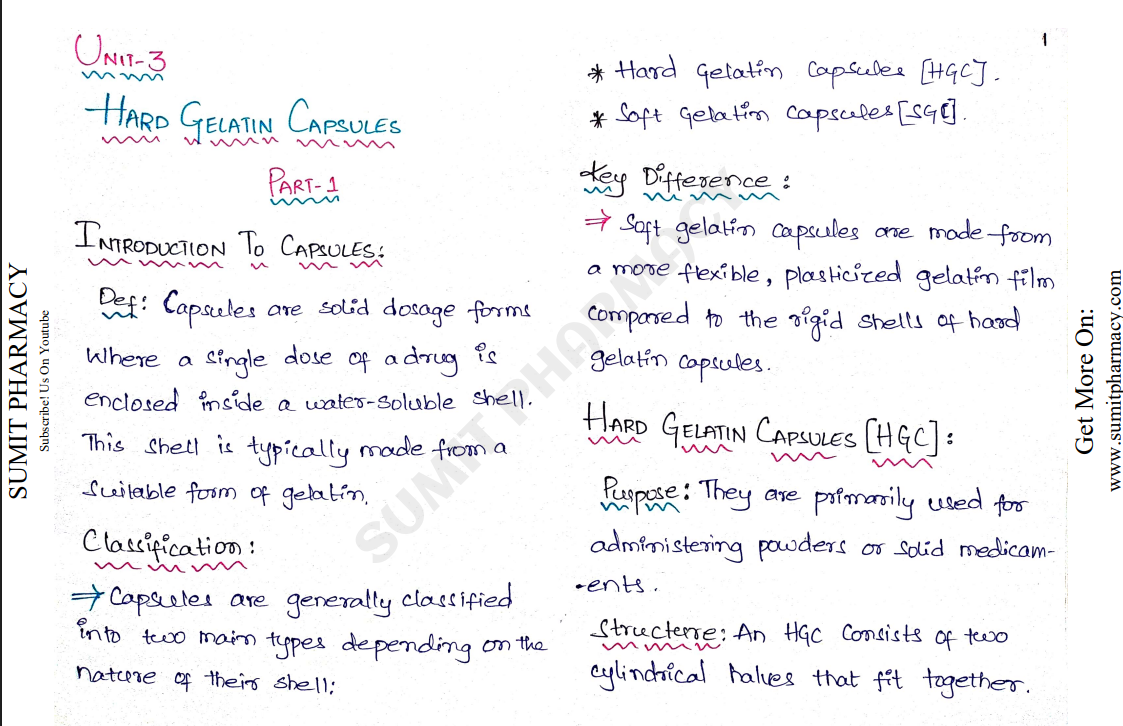 1
UNIT-3
HARD GELATIN CAPSULES
PART-1
INTRODUCTION TO CAPSULES:
Def: Capsules are solid dosage forms
where a single dose of a drug is
enclosed inside a water-soluble shell.
This shell is typically made from a
suitable form of gelatin.
Classification:
⇒ Capsules are generally classified
into two main types depending on the
nature of their shell:
* Hard Gelatin Capsules [HGC].
* Soft Gelatin Capsules [SGC].
Key Difference:
⇒ Soft gelatin capsules are made from
a more flexible, plasticized gelatin film
compared to the rigid shells of hard
gelatin capsules.
HARD GELATIN CAPSULES [HGC]:
Purpose: They are primarily used for
administering powders or solid medicam-
-ents.
Structure: An HGC consists of two
cylindrical halves that fit together.
SUMIT PHARMACY
Subscribe! Us On Youtube
SUMIT PHARMACY
Get More On:
www.sumitpharmacy.com